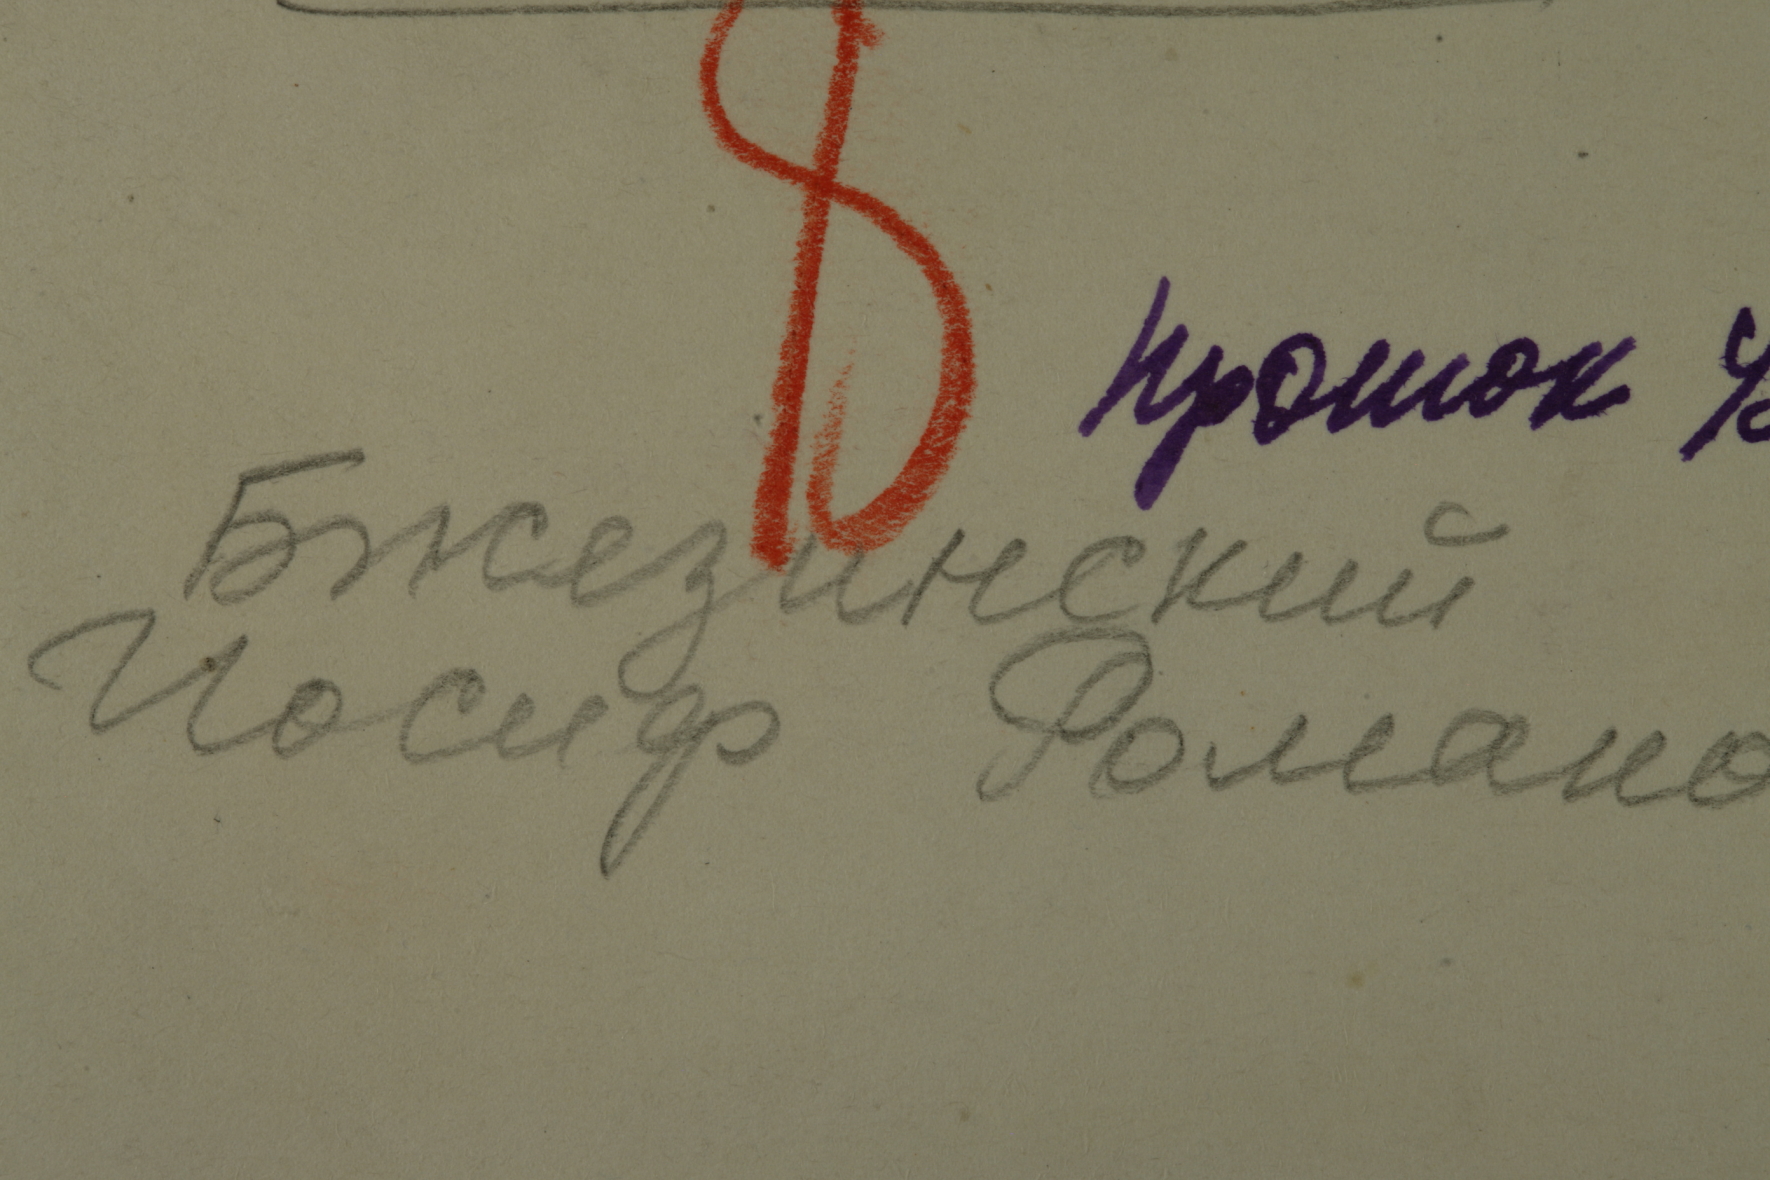 8
Крошок
Бжезинский
Иосиф Романо